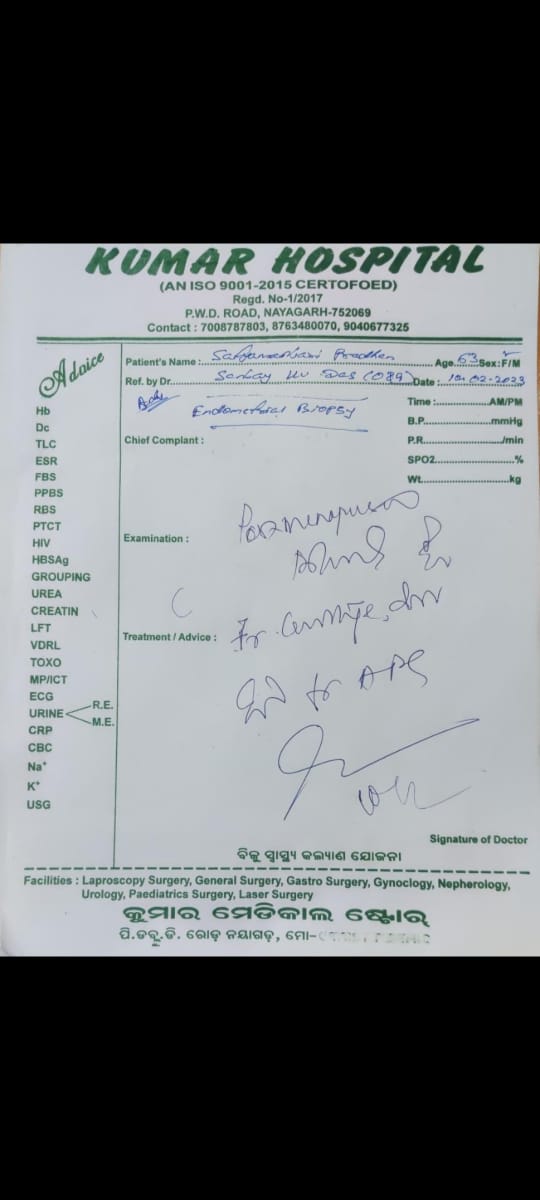 KUMAR HOSPITAL
(AN ISO 9001-2015 CERTOFOED)
Regd. No-1/2017
P.W.D. ROAD, NAYAGARH-752069
Contact : 7008787803, 8763480070, 9040677325
Advice
Patient's Name : Pradhan Age 53 Sex : F/M
Ref. by Dr. Sanjay Ku Das (O&G) Date : 10-02-2023
Adv Endometrial Biopsy
Time : AM/PM
B.P. mmHg
Chief Complant :
P.R. /min
SPO2 %
Wt. kg
Hb
Dc
TLC
ESR
FBS
PPBS
RBS
PTCT
HIV
HBSAg
GROUPING
UREA
CREATIN
LFT
VDRL
TOXO
MP/ICT
ECG
URINE R.E.
M.E.
CRP
CBC
Na⁺
K⁺
USG
Examination :
Treatment / Advice :
Signature of Doctor
ବିଜୁ ସ୍ୱାସ୍ଥ୍ୟ କଲ୍ୟାଣ ଯୋଜନା
Facilities : Laproscopy Surgery, General Surgery, Gastro Surgery, Gynoclogy, Nepherology,
Urology, Paediatrics Surgery, Laser Surgery
କୁମାର ମେଡିକାଲ ଷ୍ଟୋର୍
ପି.ଡବ୍ଲୁ.ଡି. ରୋଡ଼ ନୟାଗଡ଼, ମୋ-